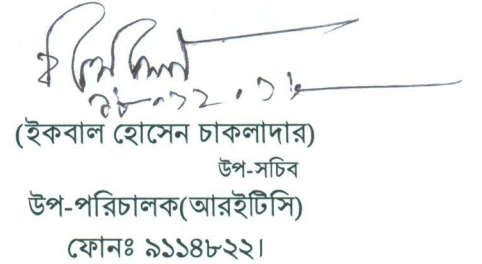 (ইকবাল হোসেন চাকলাদার)
উপ-সচিব
উপ-পরিচালক(আরইটিসি)
ফোনঃ ৯১১৪৮২২।